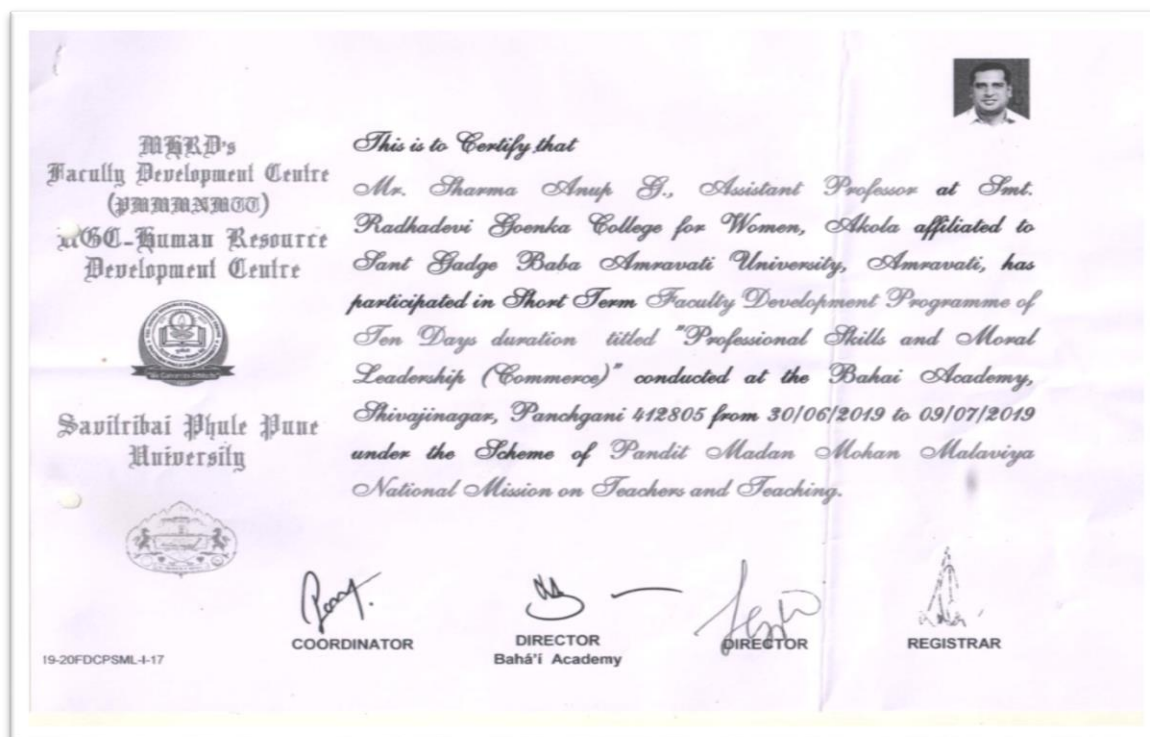 MHRD's
Faculty Development Centre
(PMMMNMTT)
UGC-Human Resource
Development Centre
Savitribai Phule Pune
University
This is to Certify that
Mr. Sharma Anup G., Assistant Professor at Smt.
Radhadevi Goenka College for Women, Akola affiliated to
Sant Gadge Baba Amravati University, Amravati, has
participated in Short Term Faculty Development Programme of
Ten Days duration titled "Professional Skills and Moral
Leadership (Commerce)" conducted at the Bahai Academy,
Shivajinagar, Panchgani 412805 from 30/06/2019 to 09/07/2019
under the Scheme of Pandit Madan Mohan Malaviya
National Mission on Teachers and Teaching.
COORDINATOR
DIRECTOR
Bahá'í Academy
DIRECTOR
REGISTRAR
19-20FDCPSML-I-17